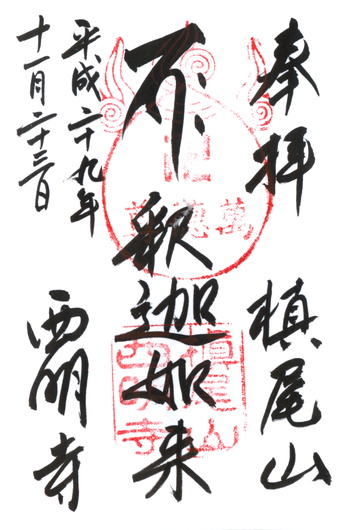 奉拝
槇尾山
釈迦如来
平成二十九年
十一月二十三日
西明寺
槇尾山
西明寺